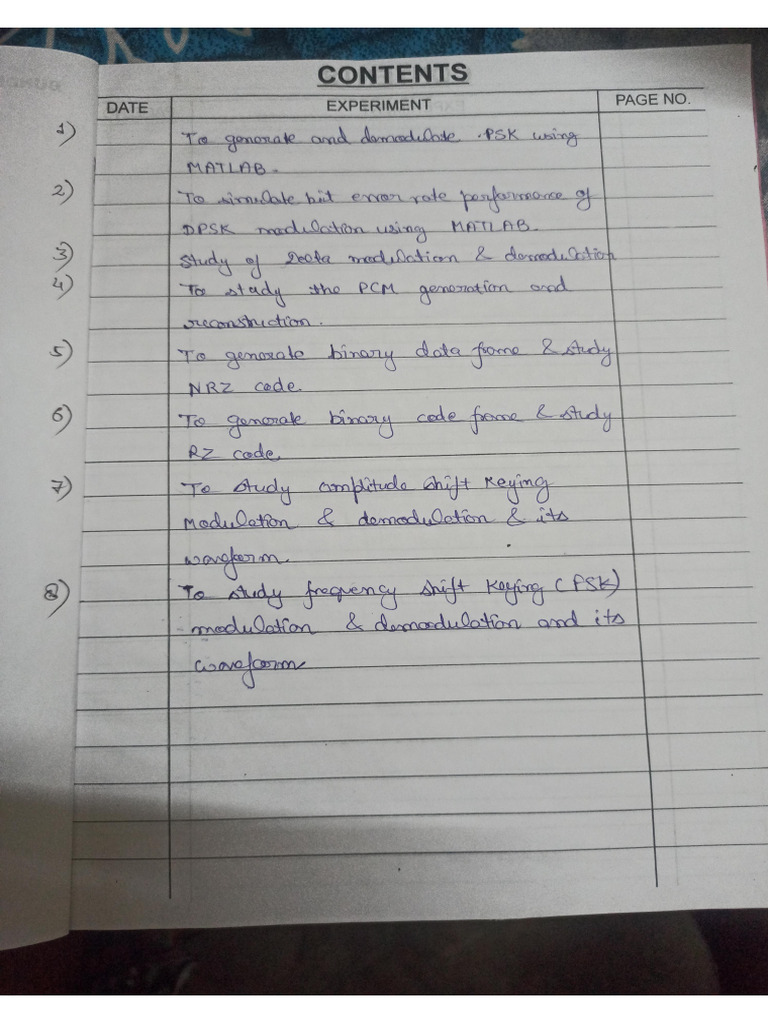 CONTENTS
DATE EXPERIMENT PAGE NO.
1) To generate and demodulate PSK using
MATLAB.
2) To simulate bit error rate performance of
DPSK modulation using MATLAB.
3) Study of Delta modulation & demodulation
4) To study the PCM generation and
reconstruction.
5) To generate binary data frame & study
NRZ code.
6) To generate binary code frame & study
RZ code
7) To study amplitude shift Keying
Modulation & demodulation & its
waveform.
8) To study frequency shift Keying (FSK)
modulation & demodulation and its
waveform